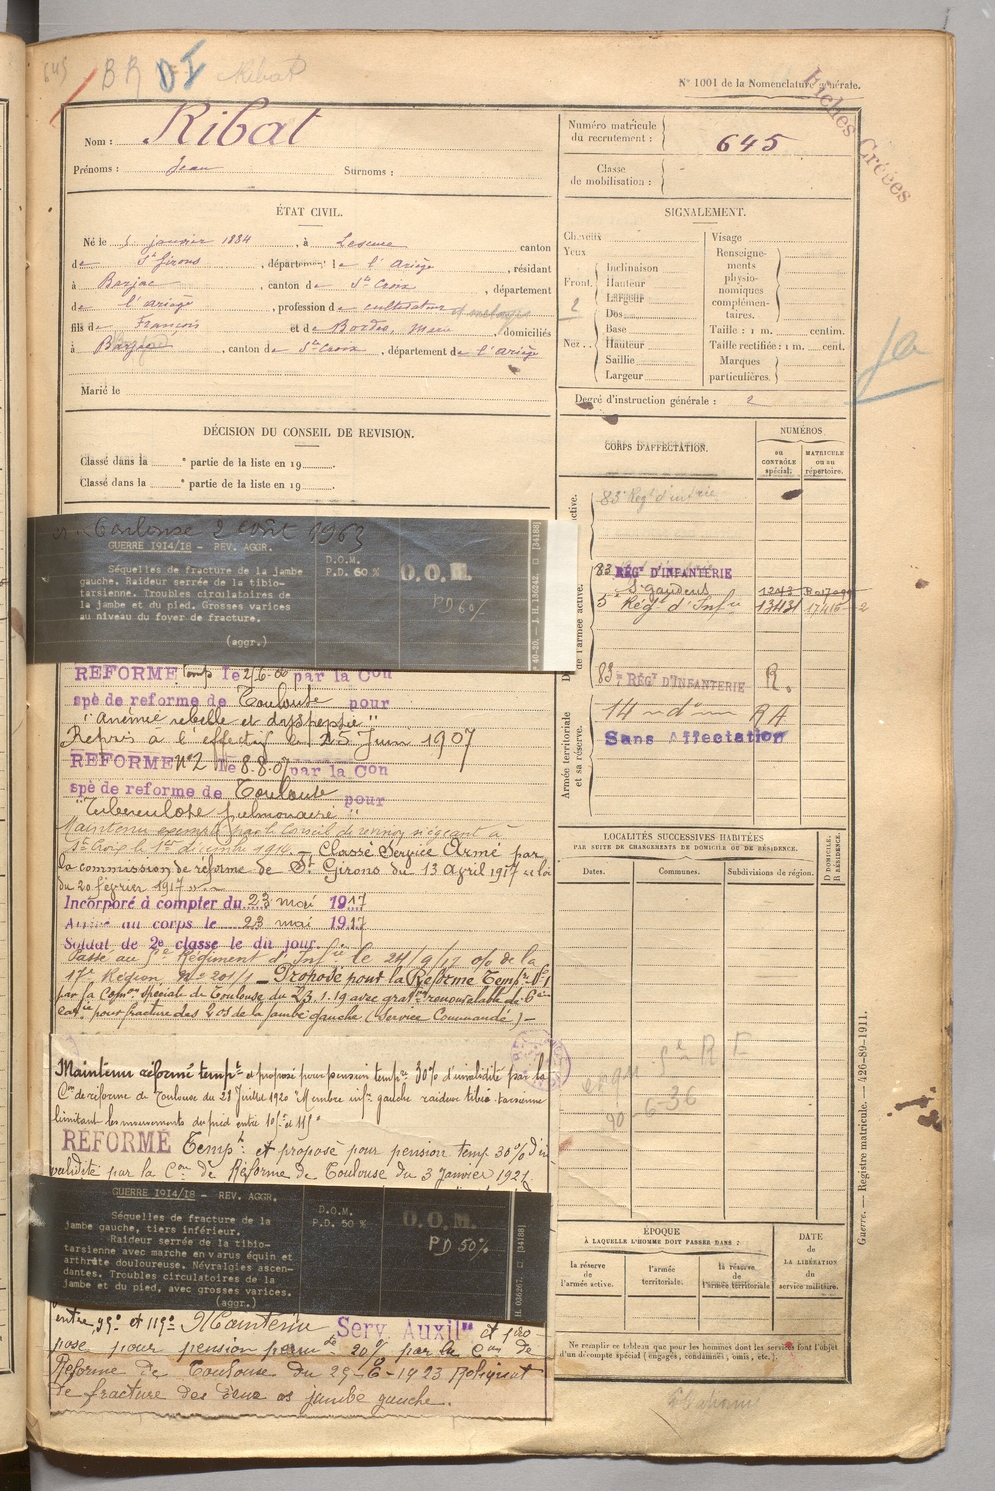 645 BR DI Ribat
N° 1001 de la Nomenclature générale.
Fiches Créées
Nom : Ribat
Prénoms : Jean Surnoms :
Numéro matricule du recrutement : 645
Classe de mobilisation :
ÉTAT CIVIL.
Né le 5 janvier 1884, à Lescure canton
de St Girons, département de l'Ariège, résidant
à Barjac, canton de Ste Croix, département
de l'Ariège, profession de cultivateur
fils de François et de Bordes, Marie, domiciliés
à Barjac, canton de Ste Croix, département de l'Ariège
Marié le
SIGNALEMENT.
Cheveux
Yeux
Front. Inclinaison
Hauteur
Largeur
2
Nez .. Dos
Base
Hauteur
Saillie
Largeur
Visage
Renseignements physionomiques complémentaires.
Taille : 1 m. centim.
Taille rectifiée : 1 m. cent.
Marques particulières.
Degré d'instruction générale : 2
DÉCISION DU CONSEIL DE REVISION.
Classé dans la e partie de la liste en 19 .
Classé dans la e partie de la liste en 19 .
CORPS D'AFFECTATION.
NUMÉROS
au CONTRÔLE spécial.
MATRICULE ou au répertoire.
83e Régt d'infrie
83 RÉGt D'INFANTERIE
St gaudens
5e Régt d'Infie 13431
83e RÉGt D'INFANTERIE R.
14 — d° — RA
Sans Affectation
Armée territoriale et sa réserve.
Toulouse 2 août 1963
GUERRE 1914/18 - REV. AGGR.
Séquelles de fracture de la jambe
gauche. Raideur serrée de la tibio-
tarsienne. Troubles circulatoires de
la jambe et du pied. Grosses varices
au niveau du foyer de fracture.
(aggr.)
D.O.M.
P.D. 60 %
D.O.M.
PD 60%
REFORME temp le 2/6-06 par la Con
spé de reforme de Toulouse pour
"anémie rebelle et dyspepsie"
Repris à l'effectif le 15 Juin 1907
REFORME N°2 le 8.8.07 par la Con
spé de reforme de Toulouse pour
"Tuberculose pulmonaire"
Maintenu exempté par le Conseil de revision siégeant à
Ste Croix le 1er décembre 1914. — Classé Service Armé par
la commission de réforme de St Girons du 13 Avril 1917
du 20 février 1917
Incorporé à compter du 23 mai 1917
Arrivé au corps le 23 mai 1917
Soldat de 2e classe le dit jour.
Passé au 5e Régiment d'Infie le 24/9/17 o/o de la
17e Région, N° 201/1 — Proposé pour la Réforme Tempre N°1
par la Comon spéciale de Toulouse du 23.1.19 avec graton renouvelable de 6e
catie pour fracture des 2 os de la jambe gauche (Service Commandé) —
Maintenu réformé tempre et proposé pour pension tempre 30% d'invalidité par la
Con de réforme de Toulouse du 28 Juillet 1920 "Membre infr gauche raideur tibio-tarsienne
limitant les mouvements du pied entre
RÉFORMÉ Tempre et proposé pour pension temp. 30% d'in-
validité par la Con de Réforme de Toulouse du 3 Janvier 192
GUERRE 1914/18 - REV. AGGR.
Séquelles de fracture de la
jambe gauche, tiers inférieur.
Raideur serrée de la tibio-
tarsienne avec marche en varus équin et
arthrite douloureuse. Névralgies ascen-
dantes. Troubles circulatoires de la
jambe et du pied, avec grosses varices.
(aggr.)
D.O.M.
P.D. 50 %
D.O.M.
PD 50%
entre 95° et 115° Maintenu Serv. Auxil" et pro-
posé pour pension permte 20% par la Con de
Réforme de Toulouse du 29-6-1923 Reliquat
de fracture des deux os jambe gauche.
LOCALITÉS SUCCESSIVES HABITÉES
PAR SUITE DE CHANGEMENTS DE DOMICILE OU DE RÉSIDENCE.
Dates.
Communes.
Subdivisions de région.
D DOMICILE.
R RÉSIDENCE.
ÉPOQUE
À LAQUELLE L'HOMME DOIT PASSER DANS :
la réserve de l'armée active.
l'armée territoriale.
la réserve de l'armée territoriale
DATE de LA LIBÉRATION du service militaire.
Ne remplir ce tableau que pour les hommes dont les services font l'objet
d'un décompte spécial (engagés, condamnés, omis, etc.).
Guerre. — Registre matricule. — 426-89-1911.